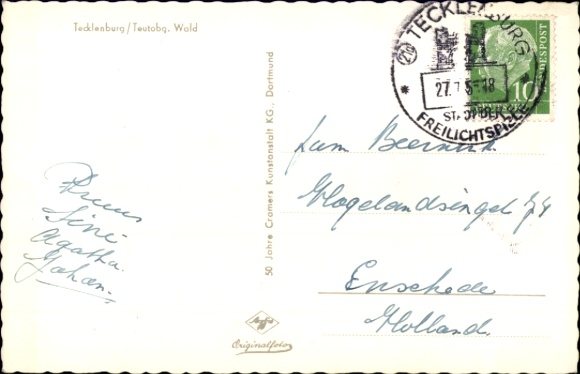 Tecklenburg/Teutobg. Wald
TECKLENBURG
(21a)
27.7.5 -18
STADT DER
FREILICHTSPIELE
DEUTSCHE BUNDESPOST
10
Fam Beernink
Vlogelandsingel 74
Enschede
Holland.
Sini
Agatha.
Johan.
50 Jahre Cramers Kunstanstalt KG., Dortmund
Agfa
Originalfoto